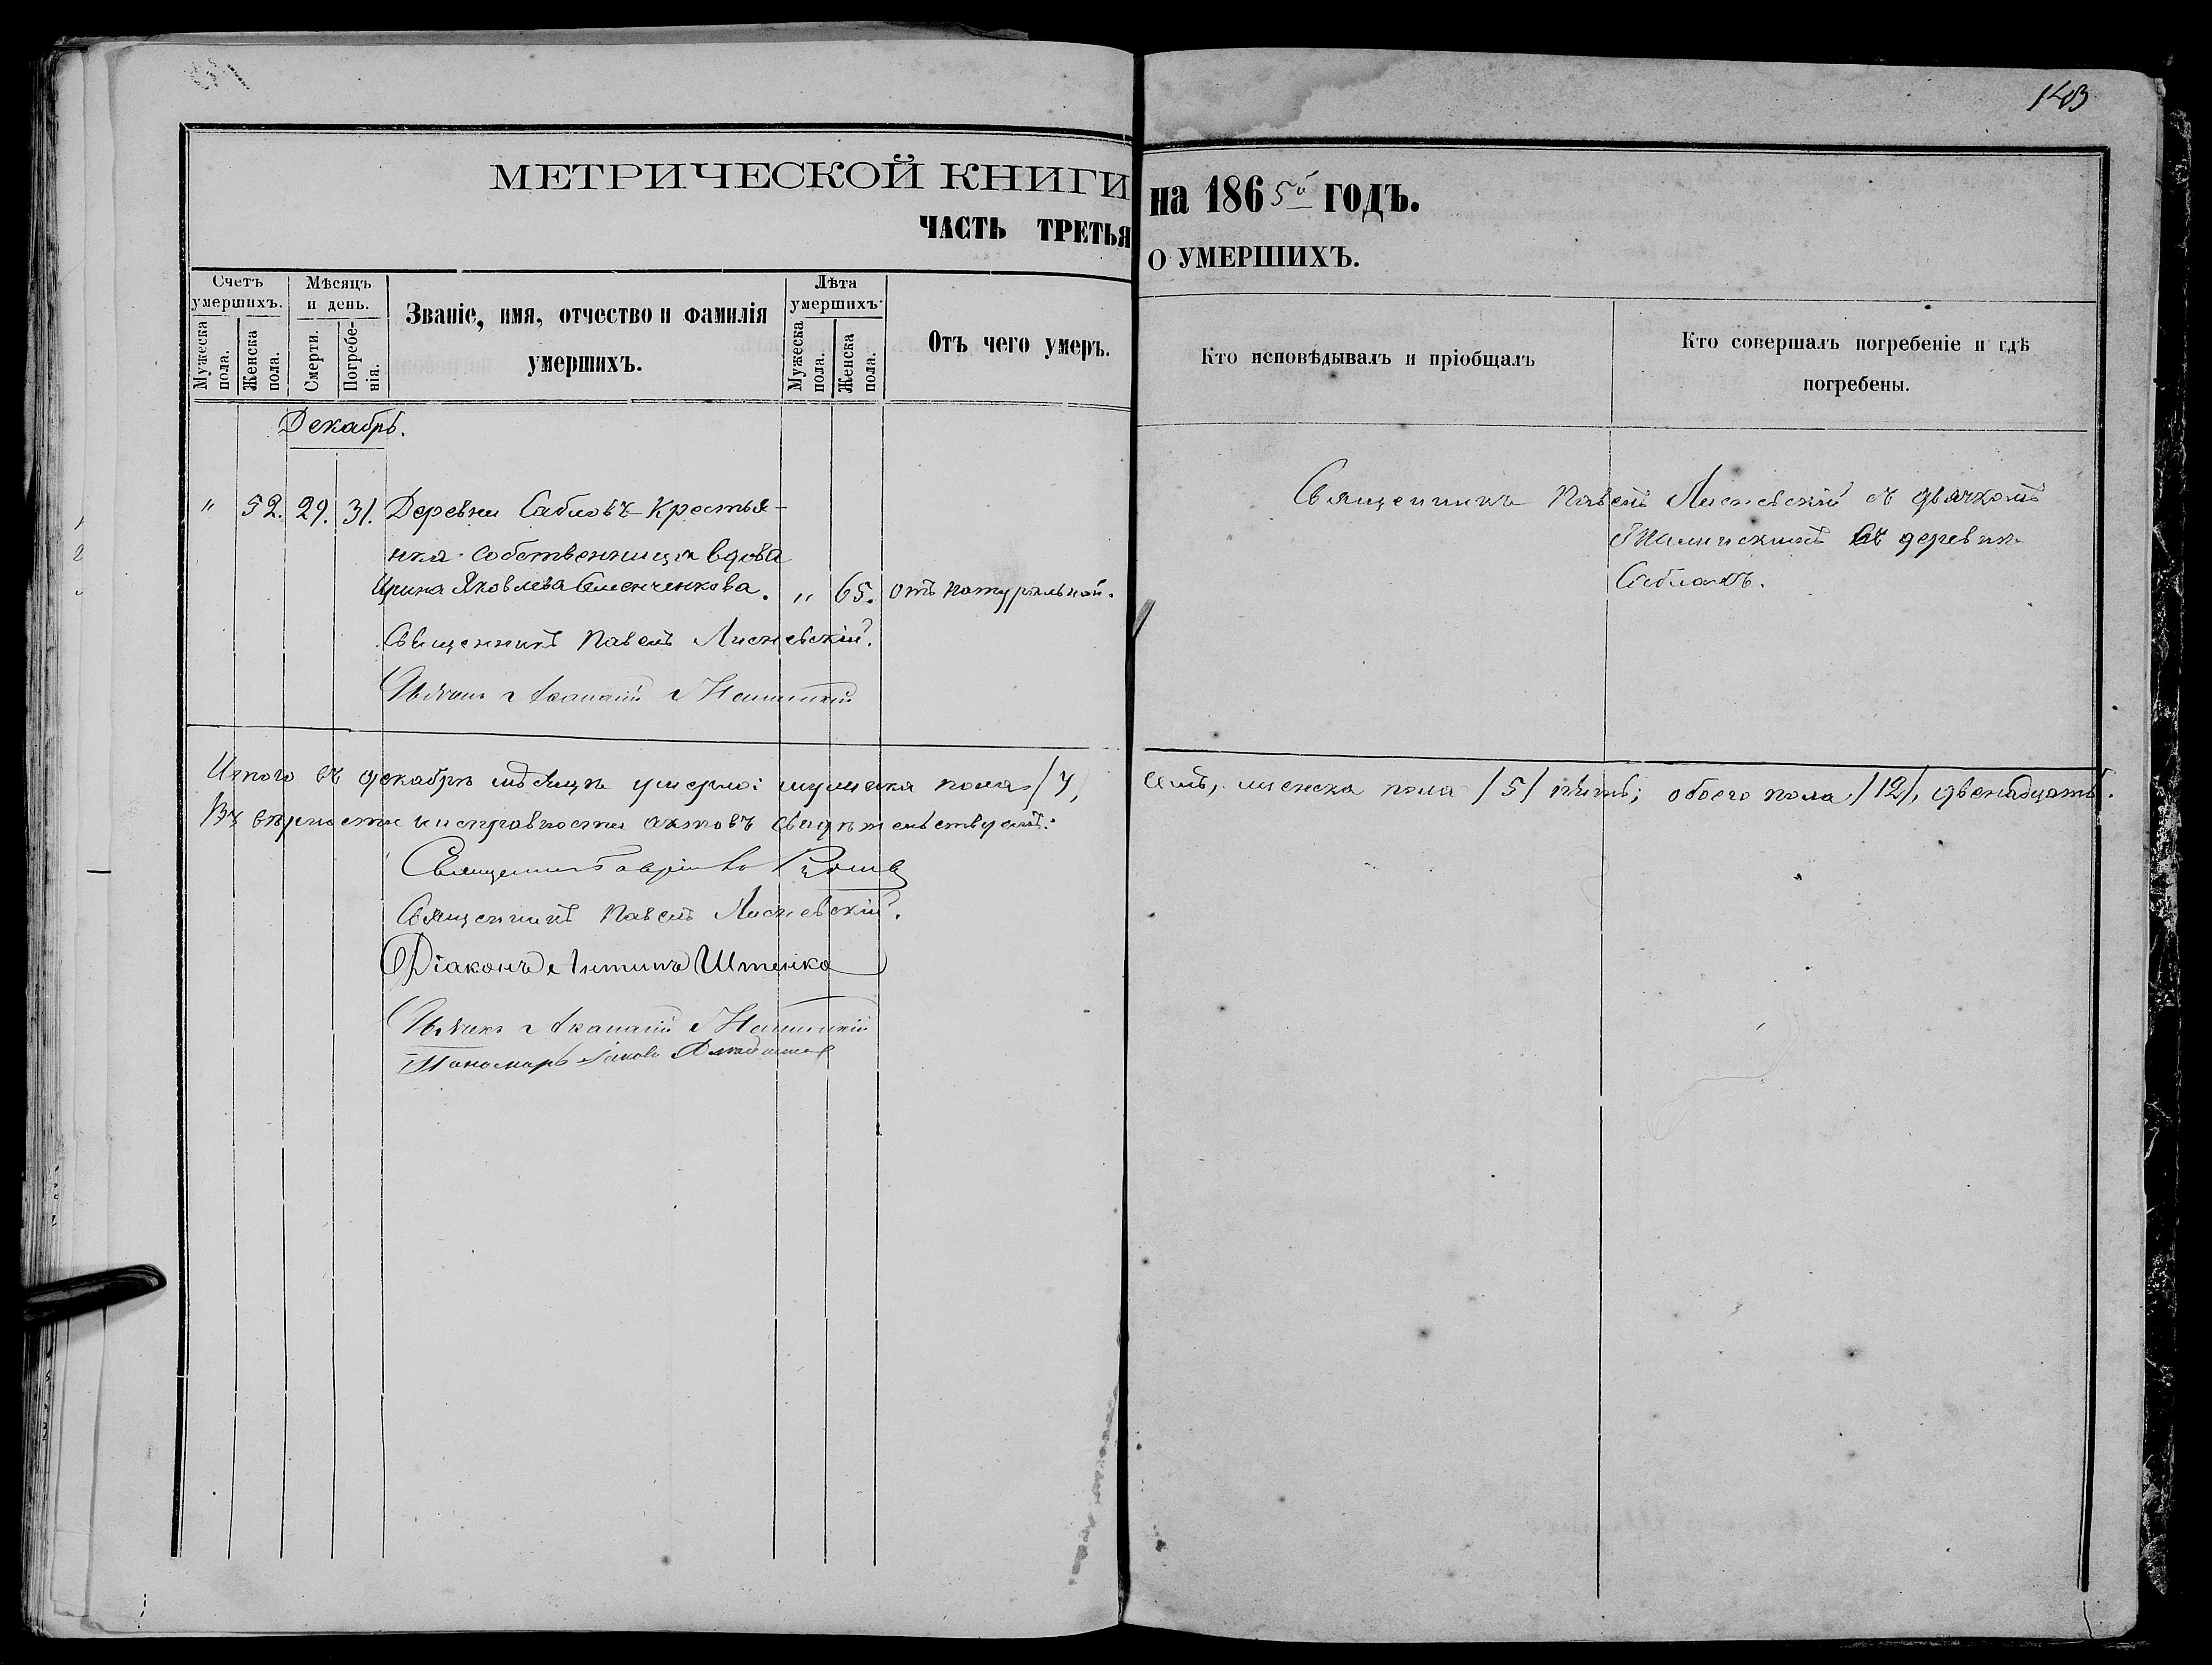 143
МЕТРИЧЕСКОЙ КНИГИ на 1865й ГОДЪ.
ЧАСТЬ ТРЕТЬЯ О УМЕРШИХЪ.
Счетъ умершихъ.
Мужеска пола.
Женска пола.
Мѣсяцъ и день.
Смерти.
Погребе-
нія.
Званіе, имя, отчество и фамилія
умершихъ.
Лѣта умершихъ.
Мужеска пола.
Женска пола.
Отъ чего умеръ.
Кто исповѣдывалъ и пріобщалъ
Кто совершалъ погребеніе и гдѣ
погребены.
Декабрь.
" 52. 29. 31. Деревни Сабловъ Крестья-
нка собственница вдова
Ирина Яковлева Семенченкова. " 65. отъ натуральной.
Священникъ Павелъ Лисневскій съ дьячкомъ
въ деревни
Священникъ Павелъ Лисневскій.
Итого въ декабрѣ мѣсяцѣ умерло: мужеска пола /7/ семь, женска пола /5/ пять; обоего пола /12/, двенадцать.
Въ вѣрности и исправности актовъ свидѣтельствуемъ:
Священникъ
Священникъ Павелъ Лисневскій.
Діаконъ Антипъ Штенко
Пономарь